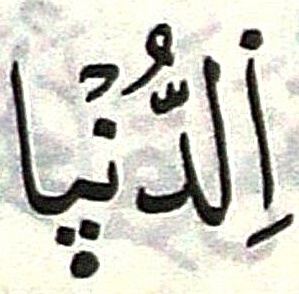 اِلدُّنْيَا